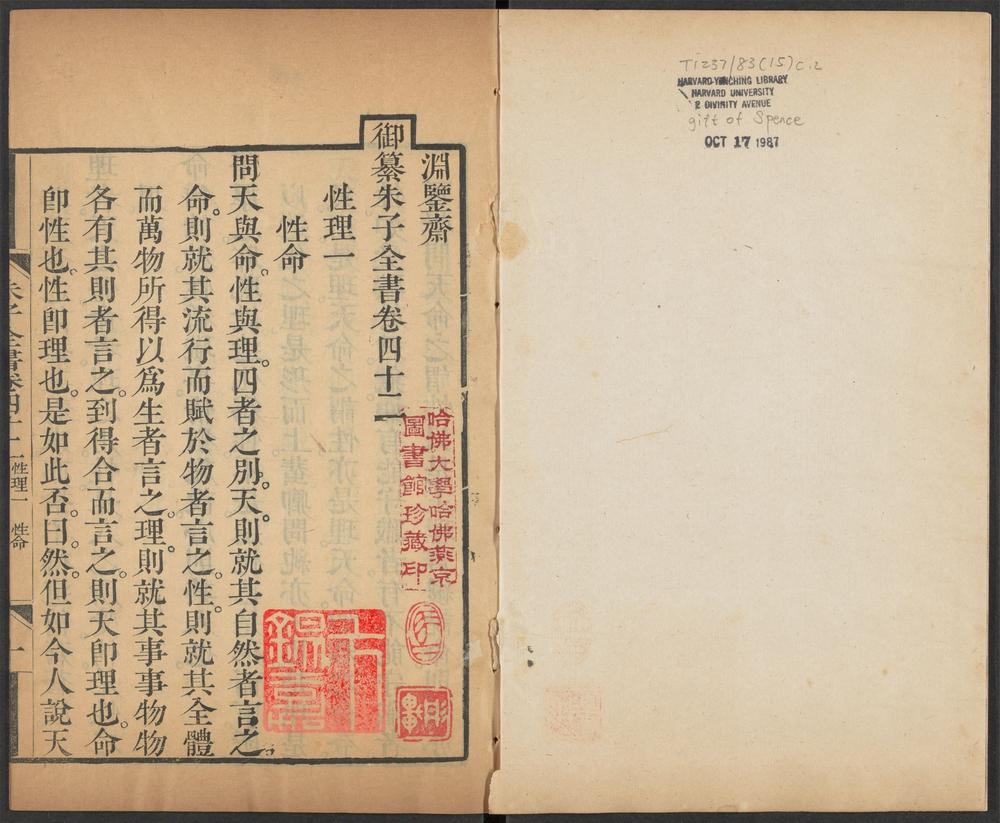 淵鑒齋
御纂朱子全書卷四十二
性理一
性命
問天與命。性與理。四者之別。天則就其自然者言之
命。則就其流行而賦於物者言之。性則就其全體
而萬物所得以爲生者言之。理則就其事事物物
各有其則者言之。到得合而言之。則天卽理也。命
卽性也。性卽理也。是如此否。曰。然。但如今人說天
朱子全書卷四十二 性理一 性命 一
哈佛大學哈佛燕京
圖書館珍藏印
T1237/83(15)c.2
HARVARD-YENCHING LIBRARY
HARVARD UNIVERSITY
2 DIVINITY AVENUE
gift of Spence
OCT 17 1987